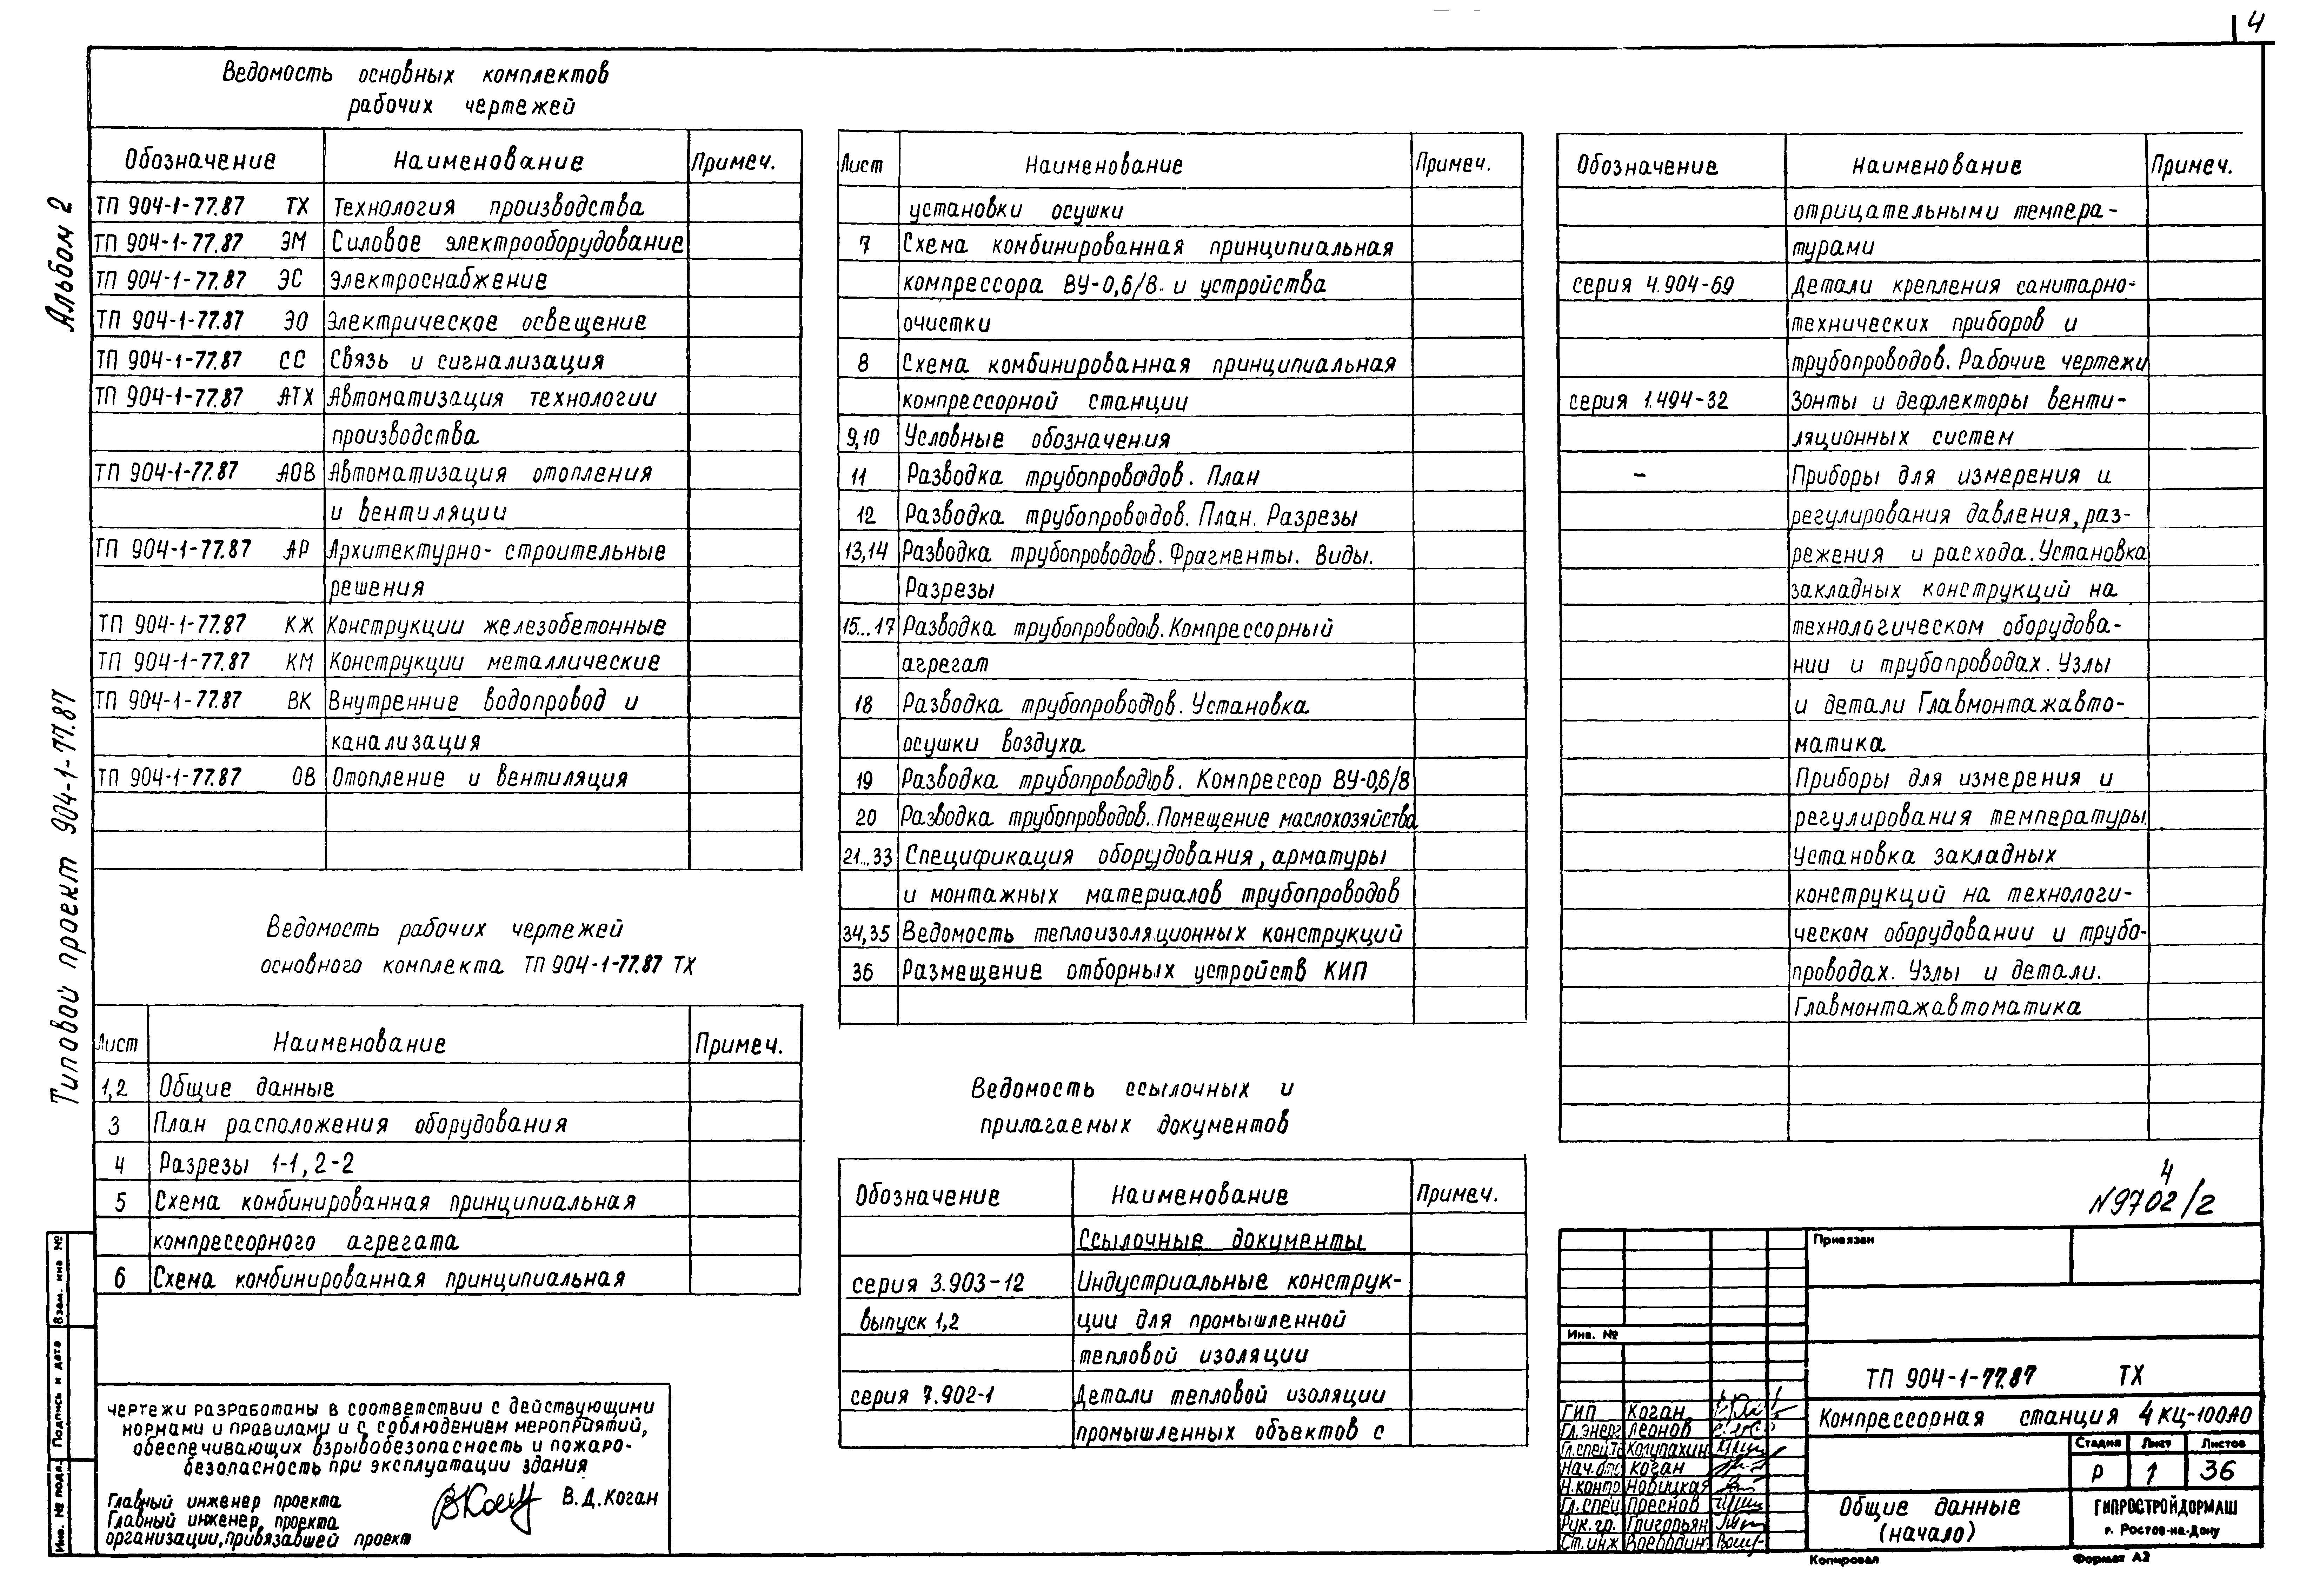 4
Альбом 2
Типовой проект 904-1-77.87
Ведомость основных комплектов
рабочих чертежей
Обозначение Наименование Примеч.
ТП 904-1-77.87 ТХ Технология производства
ТП 904-1-77.87 ЭМ Силовое электрооборудование
ТП 904-1-77.87 ЭС Электроснабжение
ТП 904-1-77.87 ЭО Электрическое освещение
ТП 904-1-77.87 СС Связь и сигнализация
ТП 904-1-77.87 АТХ Автоматизация технологии
производства
ТП 904-1-77.87 АОВ Автоматизация отопления
и вентиляции
ТП 904-1-77.87 АР Архитектурно-строительные
решения
ТП 904-1-77.87 КЖ Конструкции железобетонные
ТП 904-1-77.87 КМ Конструкции металлические
ТП 904-1-77.87 ВК Внутренние водопровод и
канализация
ТП 904-1-77.87 ОВ Отопление и вентиляция
Ведомость рабочих чертежей
основного комплекта ТП 904-1-77.87 ТХ
Лист Наименование Примеч.
1,2 Общие данные
3 План расположения оборудования
4 Разрезы 1-1, 2-2
5 Схема комбинированная принципиальная
компрессорного агрегата
6 Схема комбинированная принципиальная
Чертежи разработаны в соответствии с действующими
нормами и правилами и с соблюдением мероприятий,
обеспечивающих взрывобезопасность и пожаро-
безопасность при эксплуатации здания
Главный инженер проекта В.Д.Коган
Главный инженер проекта
организации, привязавшей проект
Взам. инв №
Подпись и дата
Инв. № подл.
Лист Наименование Примеч.
установки осушки
7 Схема комбинированная принципиальная
компрессора ВУ-0,6/8 и устройства
очистки
8 Схема комбинированная принципиальная
компрессорной станции
9,10 Условные обозначения
11 Разводка трубопроводов. План
12 Разводка трубопроводов. План. Разрезы
13,14 Разводка трубопроводов. Фрагменты. Виды.
Разрезы
15...17 Разводка трубопроводов. Компрессорный
агрегат
18 Разводка трубопроводов. Установка
осушки воздуха
19 Разводка трубопроводов. Компрессор ВУ-0,6/8
20 Разводка трубопроводов. Помещение маслохозяйства
21...33 Спецификация оборудования, арматуры
и монтажных материалов трубопроводов
34,35 Ведомость теплоизоляционных конструкций
36 Размещение отборных устройств КИП
Ведомость ссылочных и
прилагаемых документов
Обозначение Наименование Примеч.
Ссылочные документы
серия 3.903-12 Индустриальные конструк-
выпуск 1,2 ции для промышленной
тепловой изоляции
серия 7.902-1 Детали тепловой изоляции
промышленных объектов с
Обозначение Наименование Примеч.
отрицательными темпера-
турами
серия 4.904-69 Детали крепления санитарно-
технических приборов и
трубопроводов. Рабочие чертежи
серия 1.494-32 Зонты и дефлекторы венти-
ляционных систем
- Приборы для измерения и
регулирования давления, раз-
режения и расхода. Установка
закладных конструкций на
технологическом оборудова-
нии и трубопроводах. Узлы
и детали Главмонтажавто-
матика
Приборы для измерения и
регулирования температуры
Установка закладных
конструкций на технологи-
ческом оборудовании и трубо-
проводах. Узлы и детали.
Главмонтажавтоматика
4
N9702/2
Привязан
Инв. №
ТП 904-1-77.87 ТХ
Компрессорная станция 4КЦ-100А0
ГИП Коган
Гл.энерг Леонов
Гл.спец.
Нач.отд Коган
Н.контр Новицкая
Гл.спец Преснов
Рук.гр. Григорьян
Ст.инж
Стадия Лист Листов
Р 1 36
Общие данные
(начало)
ГИПРОСТРОЙДОРМАШ
г. Ростов-на-Дону
Копировал Формат А2